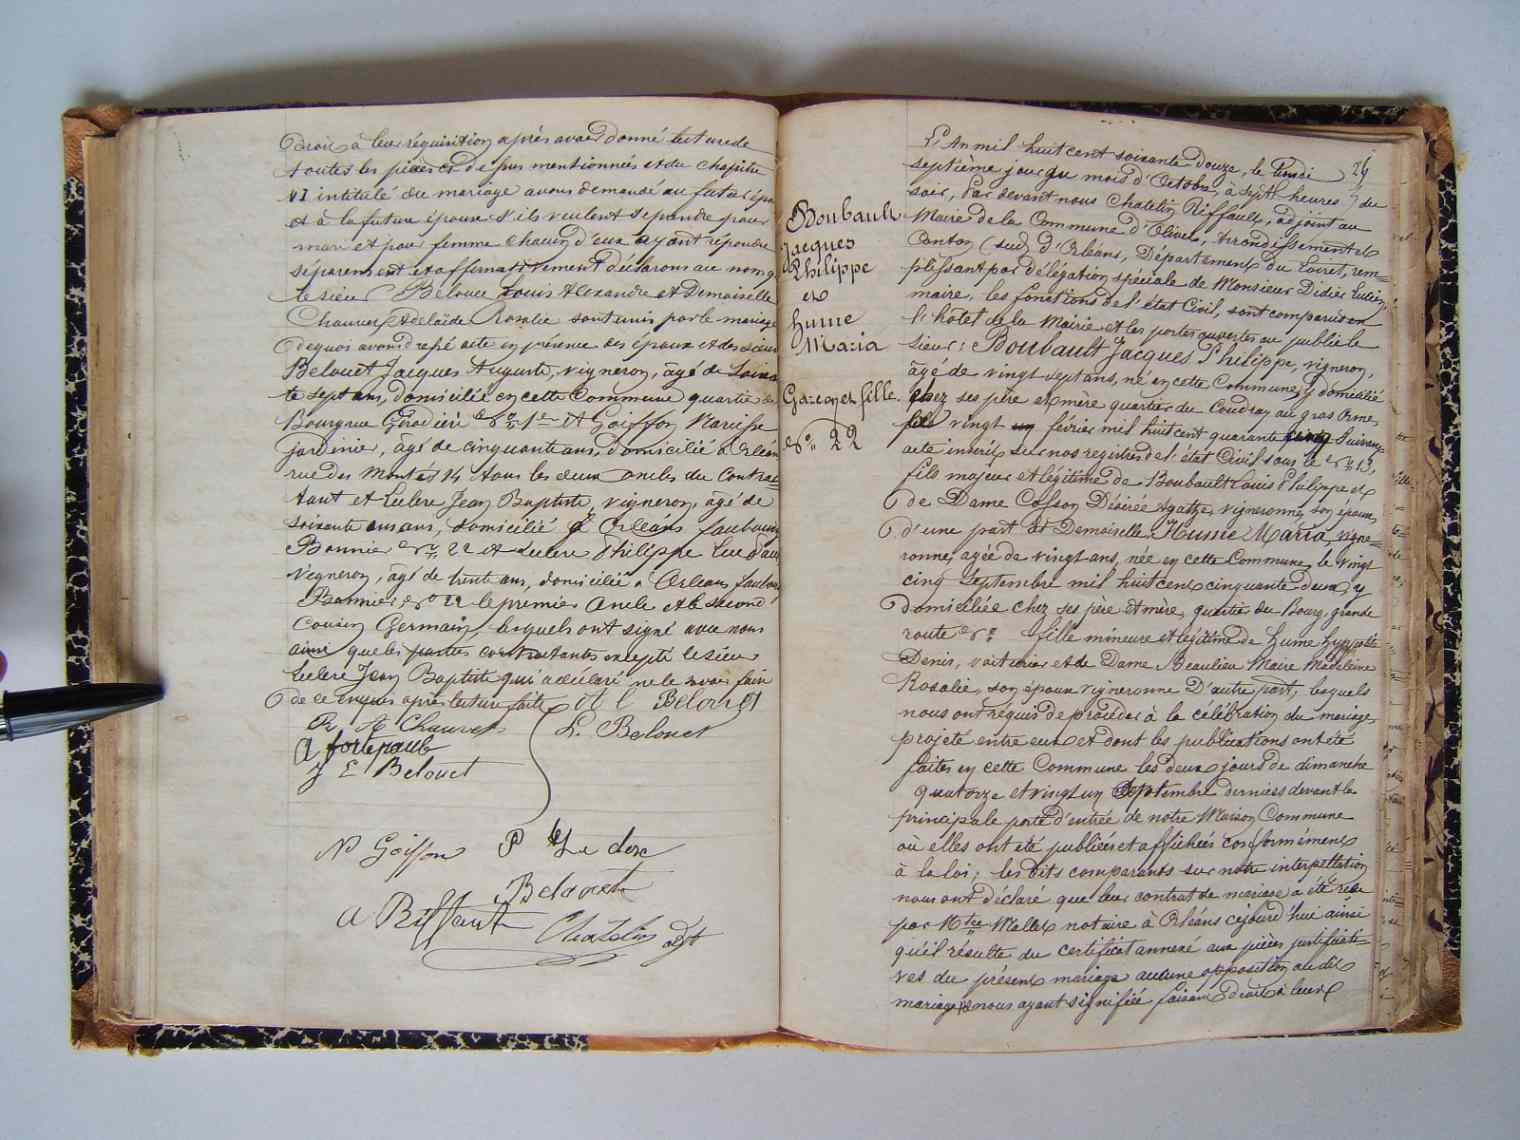 droit à leur réquisition après avoir donné lecture de
toutes les pièces ci dessus mentionnées et du chapitre
VI intitulé du mariage avons demandé au futur épou
et à la future épouse s'ils veulent se prendre pour
mari et pour femme chacun d'eux ayant répondu
séparement et affirmativement déclarons au nom
le sieur Belouet Louis Alexandre et Demoiselle
Chauvet Adelaïde Rosalie sont unis par le mariage
de quoi avons dressé acte en présence des époux et des sieurs
Belouet Jacques Auguste, vigneron, âgé de soixan
te sept ans, domicilié en cette Commune quartier du
Bourg rue Et Goiffon Narcisse
jardinier, âgé de cinquante ans, domicilié à Orléans
rue des Montées 14 tous les deux oncles du contrac-
tant et Leclere Jean Baptiste, vigneron, âgé de
soixante ans, domicilié à Orléans faubourg
Bannier No 22 et Leclere Philippe
vigneron, âgé de trente ans, domicilié à Orléans faubourg
Bannier No 22 le premier oncle et le second
Cousin Germain, lesquels ont signé avec nous
ainsi que les parties contractantes excepté le sieur
Leclere Jean Baptiste qui a déclaré ne le savoir faire
de ce enquis après lecture faite A L Belouet
R A Chauvet L. Belouet
A fortepaule
J E Belouet
N Goiffon P Le clere
Belouet
A Riffault Chatelin adjt
Boubault
Jacques
Philippe
et
hume
Maria
Garçon et fille.
No 22
24
L'An mil huit cent soixante douze, le Lundi
septième jour du mois d'Octobre, à sept heures du
soir, Par devant nous Chatelin Riffault, adjoint au
Maire de la Commune d'Olivet, Arrondissement et
Canton (sud) d'Orléans, Département du Loiret, rem-
plissant par délégation spéciale de Monsieur Didier Lucien
maire, les fonctions de l'état Civil, sont comparus en
l'hôtel de la Mairie et les portes ouvertes au public le
sieur: Boubault Jacques Philippe, vigneron,
âgé de vingt sept ans, né en cette Commune, y domicilié
chez ses père et mère quartier du Coudray au gros Orme,
le vingt un février mil huit cent quarante cinq Suivant
acte inscrit sur nos registres de l'état Civil sous le No 13,
fils majeur et légitime de Boubault Louis Philippe et
de Dame Cosson Désirée Agathe, vigneronne, son épouse,
d'une part Et Demoiselle Hume Maria, vigne-
ronne, agée de vingt ans, née en cette Commune, le vingt
cinq Septembre mil huit cent cinquante deux, y
domiciliée chez ses père et mère, quartier du Bourg, grande
route No fille mineure et légitime de hume hyppolite
Denis, voiturier et de Dame Beaulieu Marie Madeleine
Rosalie, son épouse vigneronne D'autre part, lesquels
nous ont requis de procéder à la célébration du mariage
projeté entre eux et dont les publications ont été
faites en cette Commune les deux jours de dimanche
quatorze et vingt un Septembre derniers devant la
principale porte d'entrée de notre Maison Commune
où elles ont été publiées et affichées conformément
à la loi; les dits comparants sur notre interpellation
nous ont déclaré que leur contrat de mariage a été reçu
par Mtre Mallet notaire à Orléans cejourd'hui ainsi
qu'il résulte du certificat annexé aux pièces justificati-
ves du présent mariage aucune opposition au dit
mariage ne nous ayant signifiée faisant droit à leur